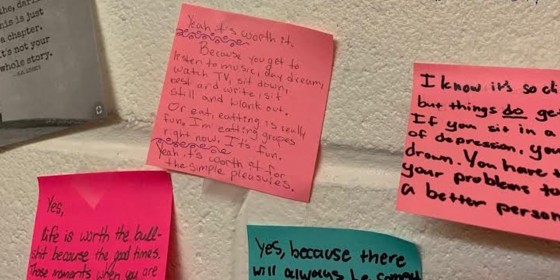 the, dar
his is just
a chapter,
it's not your
whole story.
Yeah it's worth it.
Because you get to
listen to music, day dream,
watch TV, sit down,
rest and write, sit
still and blank out.
Or eat, eatting is really
fun. I'm eatting grapes
right now. It's fun.
Yeah it's worth it for
the simple pleasures.
I know it's so cli
but things do get
If you sit in a
of depression, you
drown. You have t
your problems to
a better person
Yes,
life is worth the bull-
shit because the good times.
Those moments when you are
Yes, because there
will always be someth